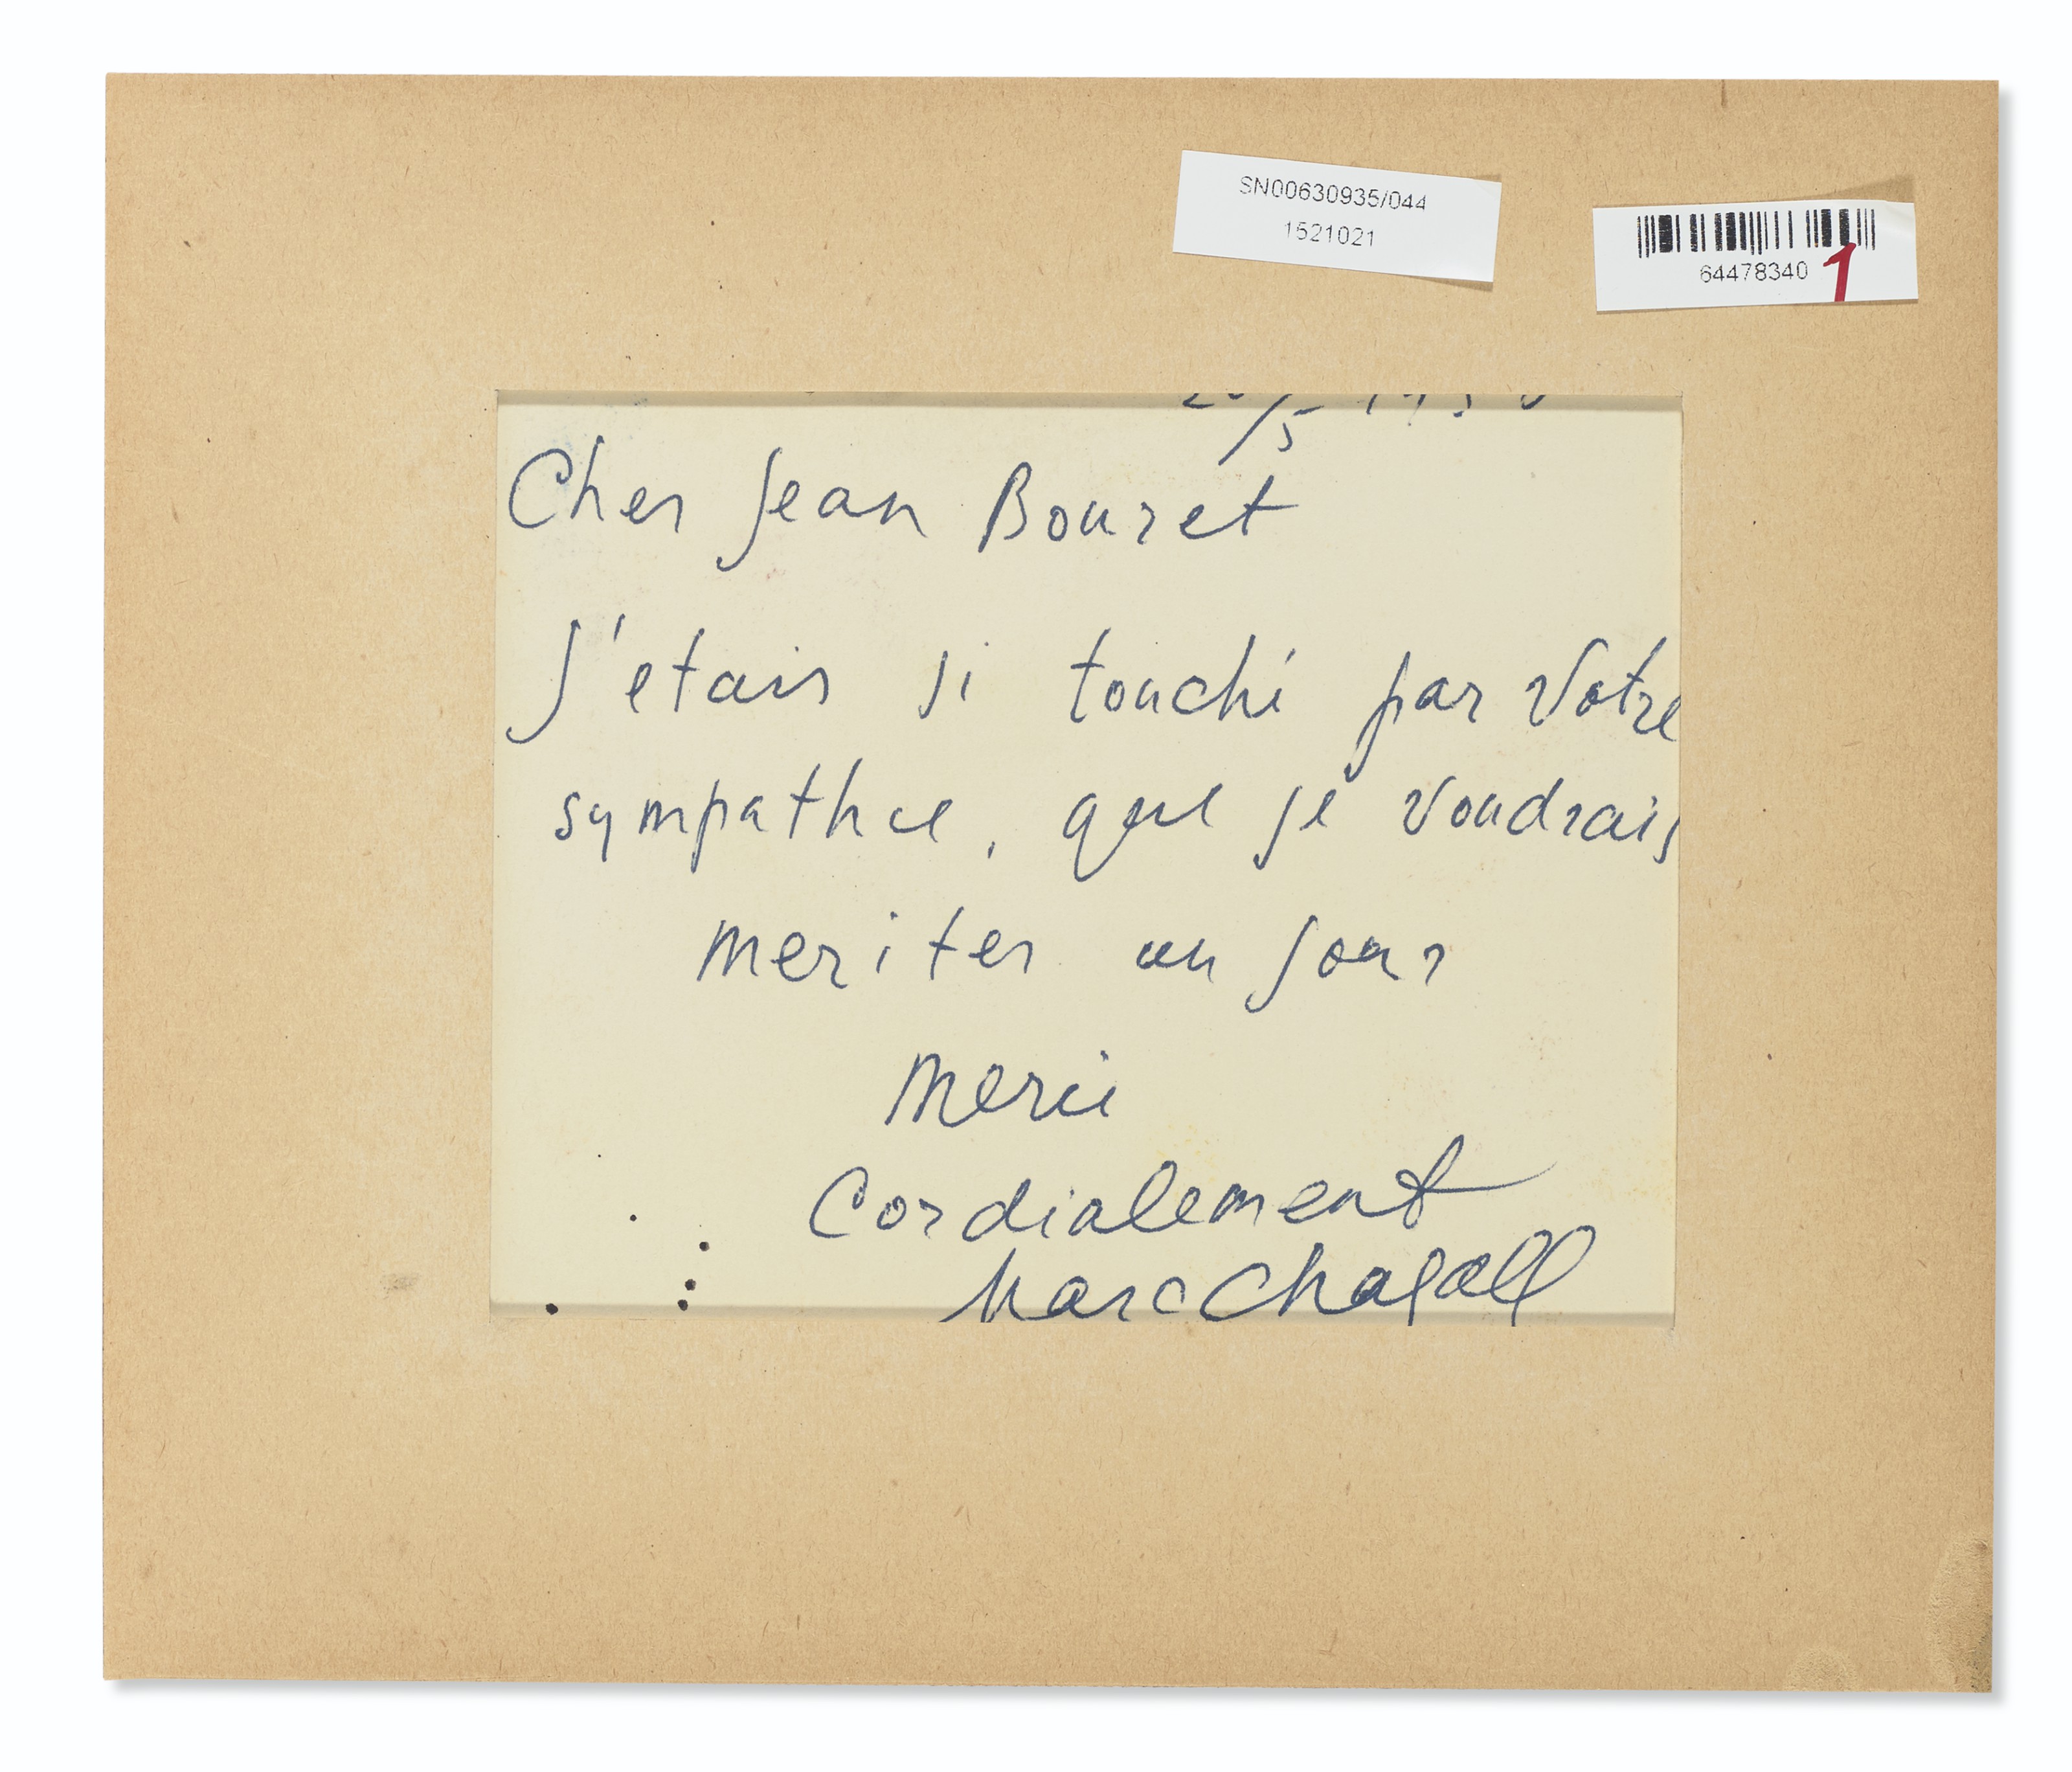 SN00630935/044
1521021
64478340 1
Cher Jean Bouret
J'etais si touché par Votre
sympathie, que je voudrais
meriter un jour
merci
Cordialement
Marc Chagall